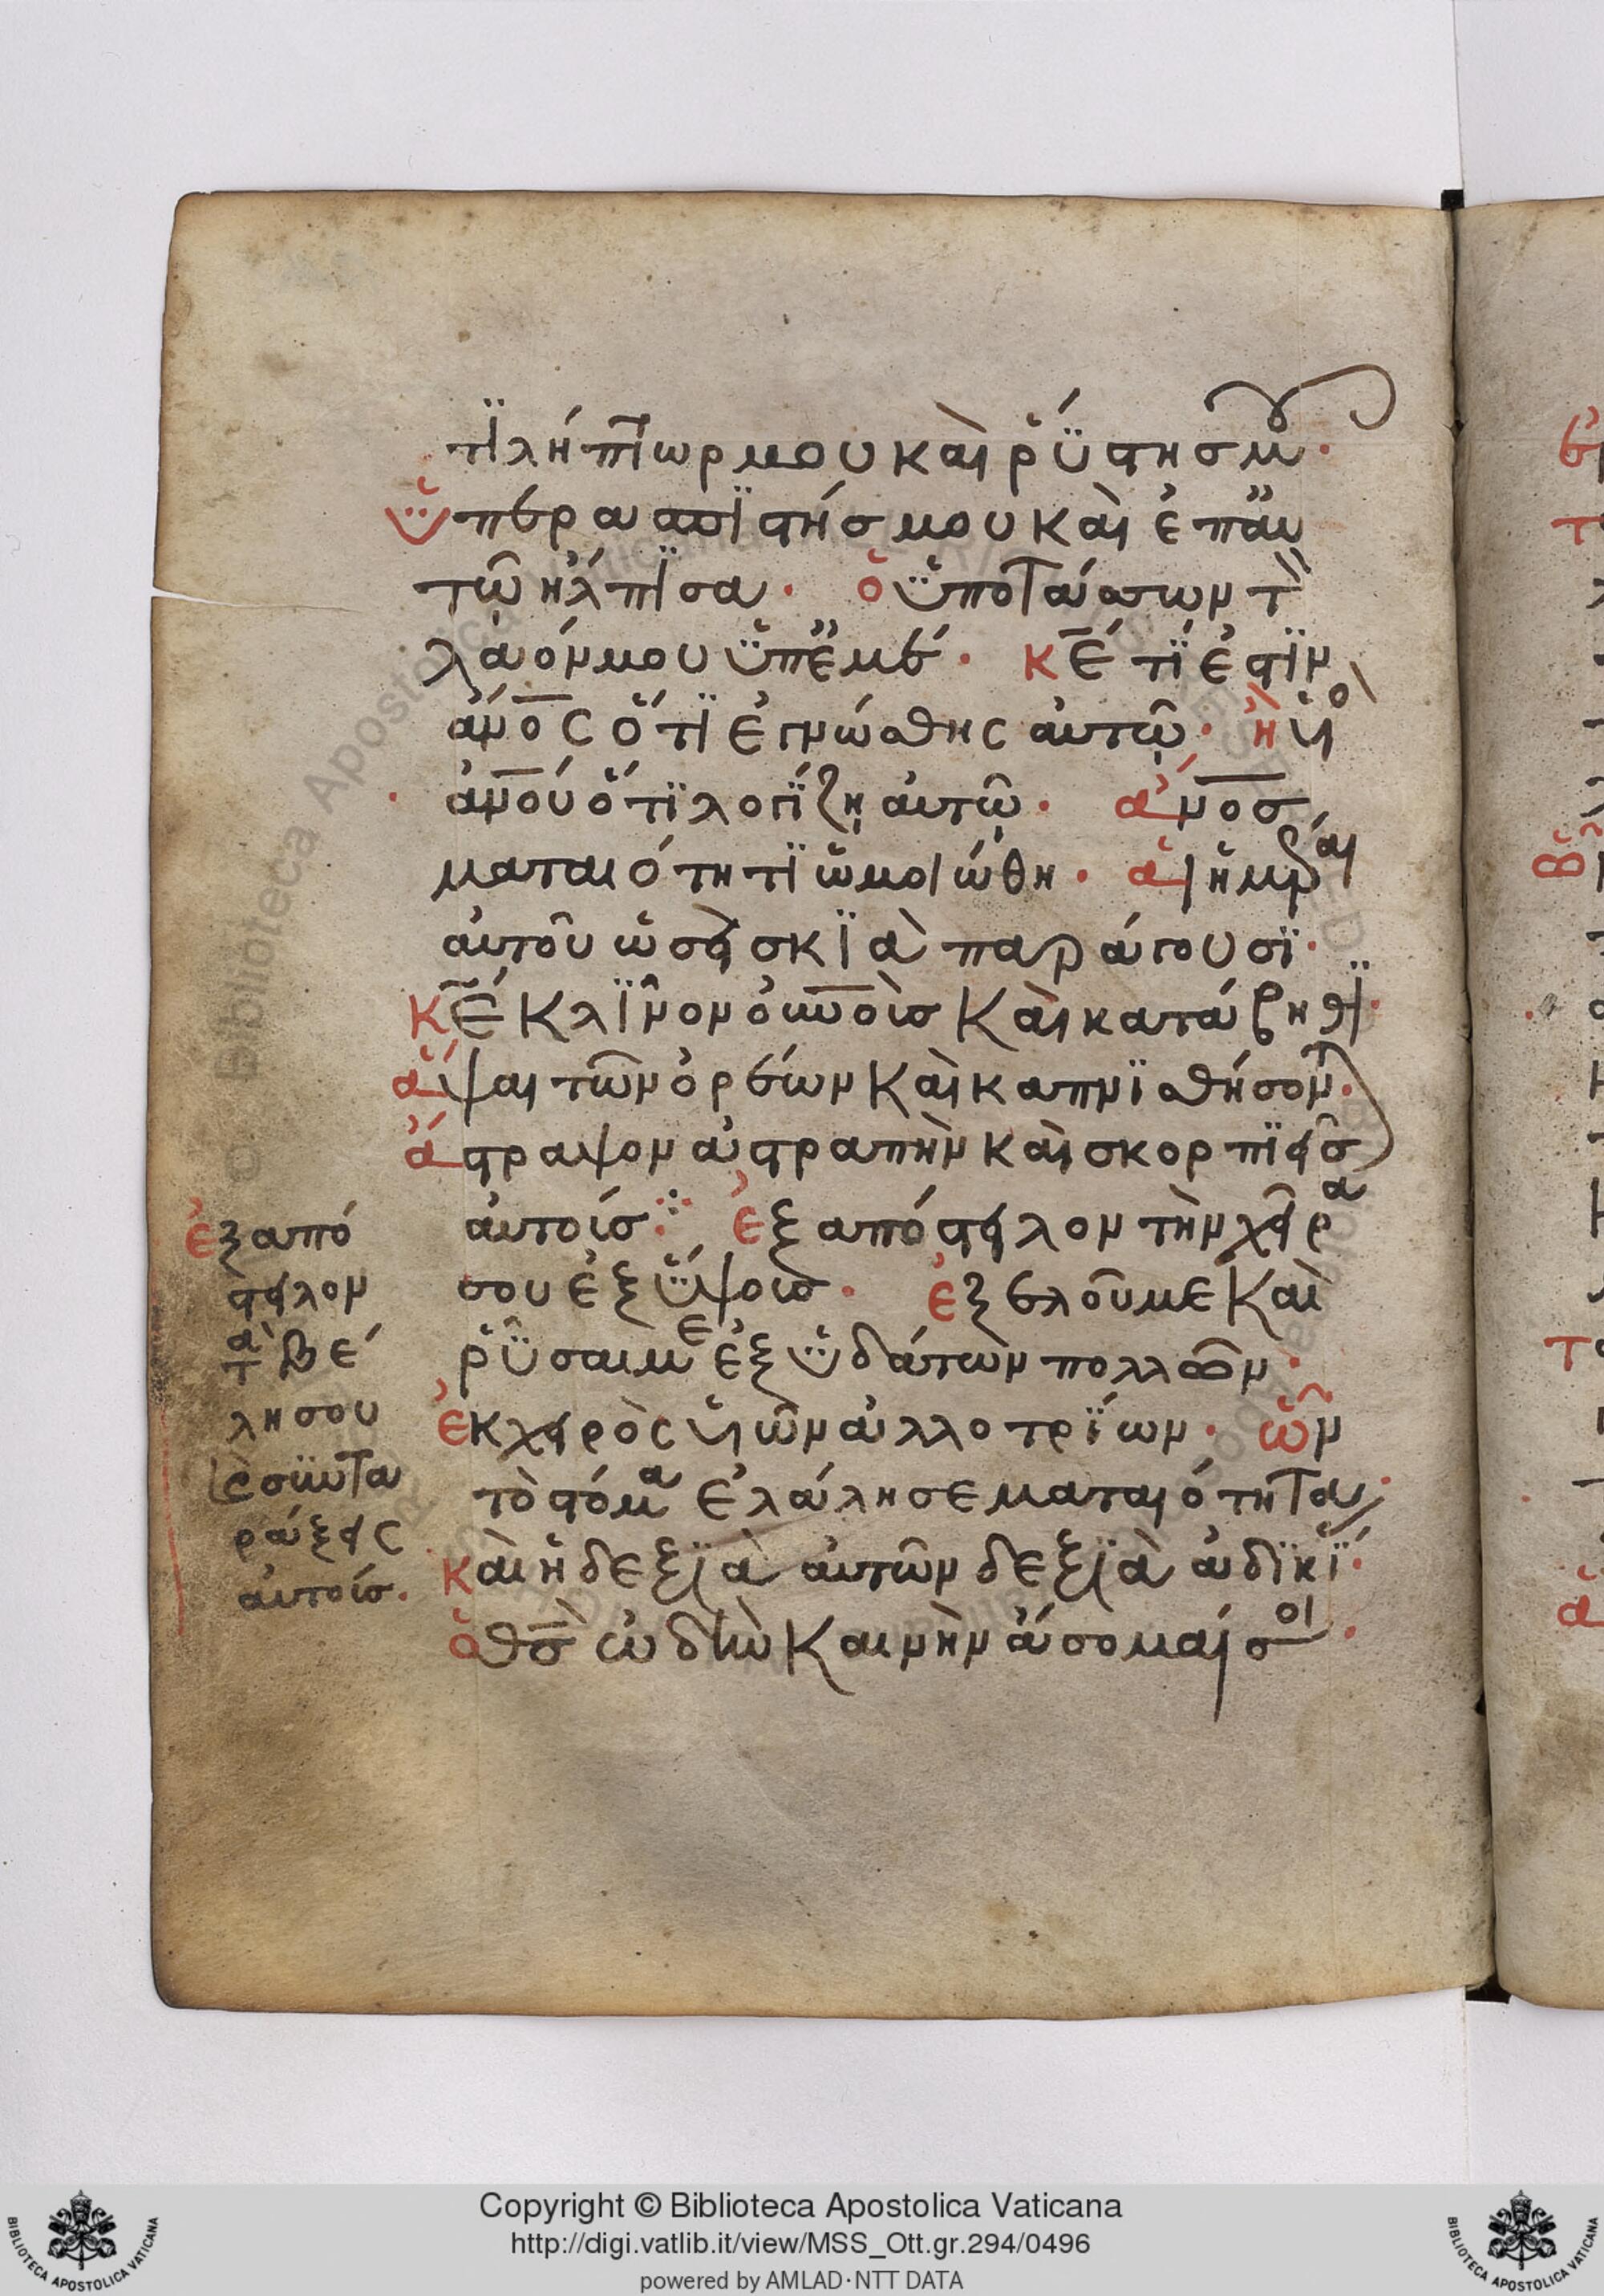 τϊλήπτωρ μου καὶ ῥύστησ μου·
ὑπερασπϊστήσ μου καὶ ἐπ αυ
τῶ ἤλπϊσα· ὁ ὑποτάσσων τὸν
λαόν μου ὑπ ἐμέ· κ̅ε̅ τί ἐστϊν
ἄν̅ο̅ς ὅτϊ ἐγνώσθης αὐτῶ· ἢ υἱὸσ
ἀν̅ο̅ύ ὅτϊ λογίζη αὐτῶ· ἄν̅ο̅σ
ματαιότητϊ ὡμοιώθη· αἱ ἡμέραι
αὐτοῦ ὡσεὶ σκϊὰ παράγουσϊ·
κ̅ε̅ κλῖνον ὀυ̅ν̅ο̅ὺσ καὶ κατάβηθϊ·
ἅψαι τῶν ὀρέων καὶ καπνϊσθήσονται·
ἄστραψον ἀστραπὴν καὶ σκορπϊεῖσ
αὐτούσ· ἐξαπόστειλον τὴν χεῖρα
σου ἐξ ὕψουσ· ἐξελοῦ με καὶ
ῥῦσαι με ἐξ ὑδάτων πολλῶν·
ἐκ χειρὸς υἱῶν ἀλλοτρίων· ὧν
τὸ στόμα ἐλάλησε ματαιότητα·
καὶ ἡ δεξϊὰ αὐτῶν δεξϊὰ ἀδϊκί·
ὁ θ̅σ̅ ὠδὴν καινὴν ἄσομαί σοι·
ἐξαπό
στειλον
τὰ βέ
λη σου
καὶ συντα
ράξεις
αὐτούσ·
Copyright © Biblioteca Apostolica Vaticana
http://digi.vatlib.it/view/MSS_Ott.gr.294/0496
powered by AMLAD·NTT DATA
BIBLIOTECA APOSTOLICA VATICANA
BIBLIOTECA APOSTOLICA VATICANA